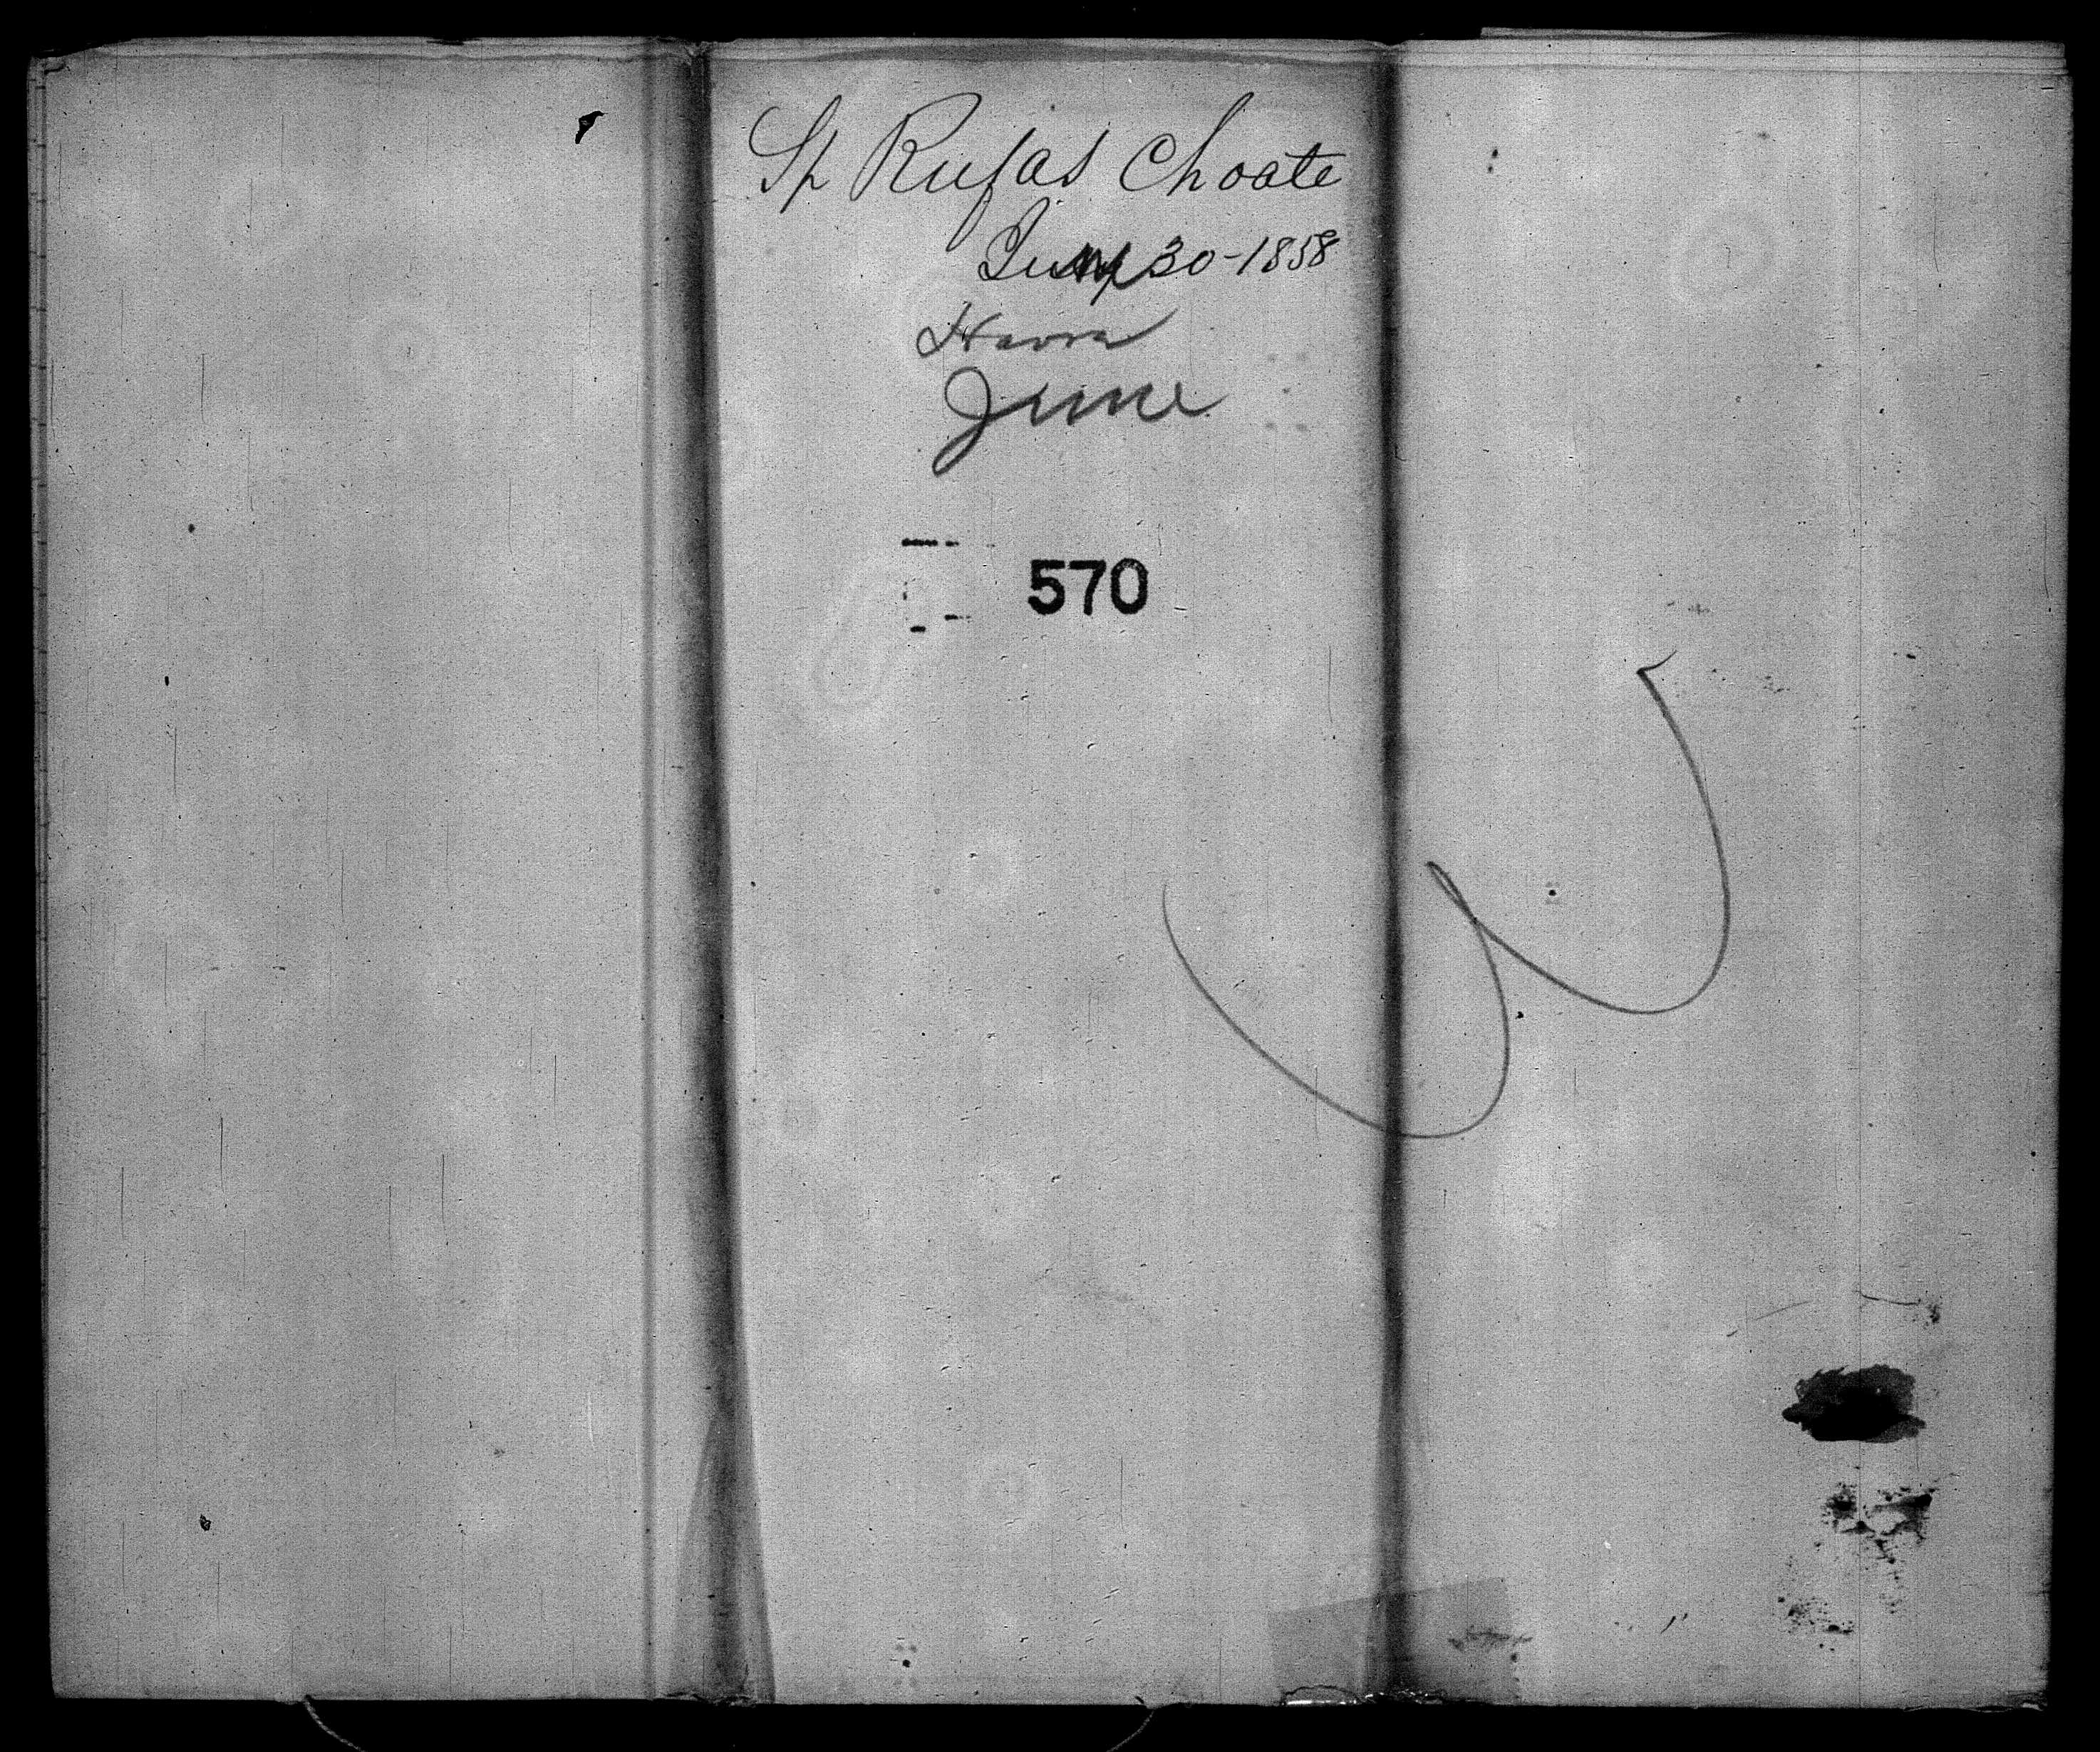 Sp Rufas Choate
June 30-1858
Havre
June
570